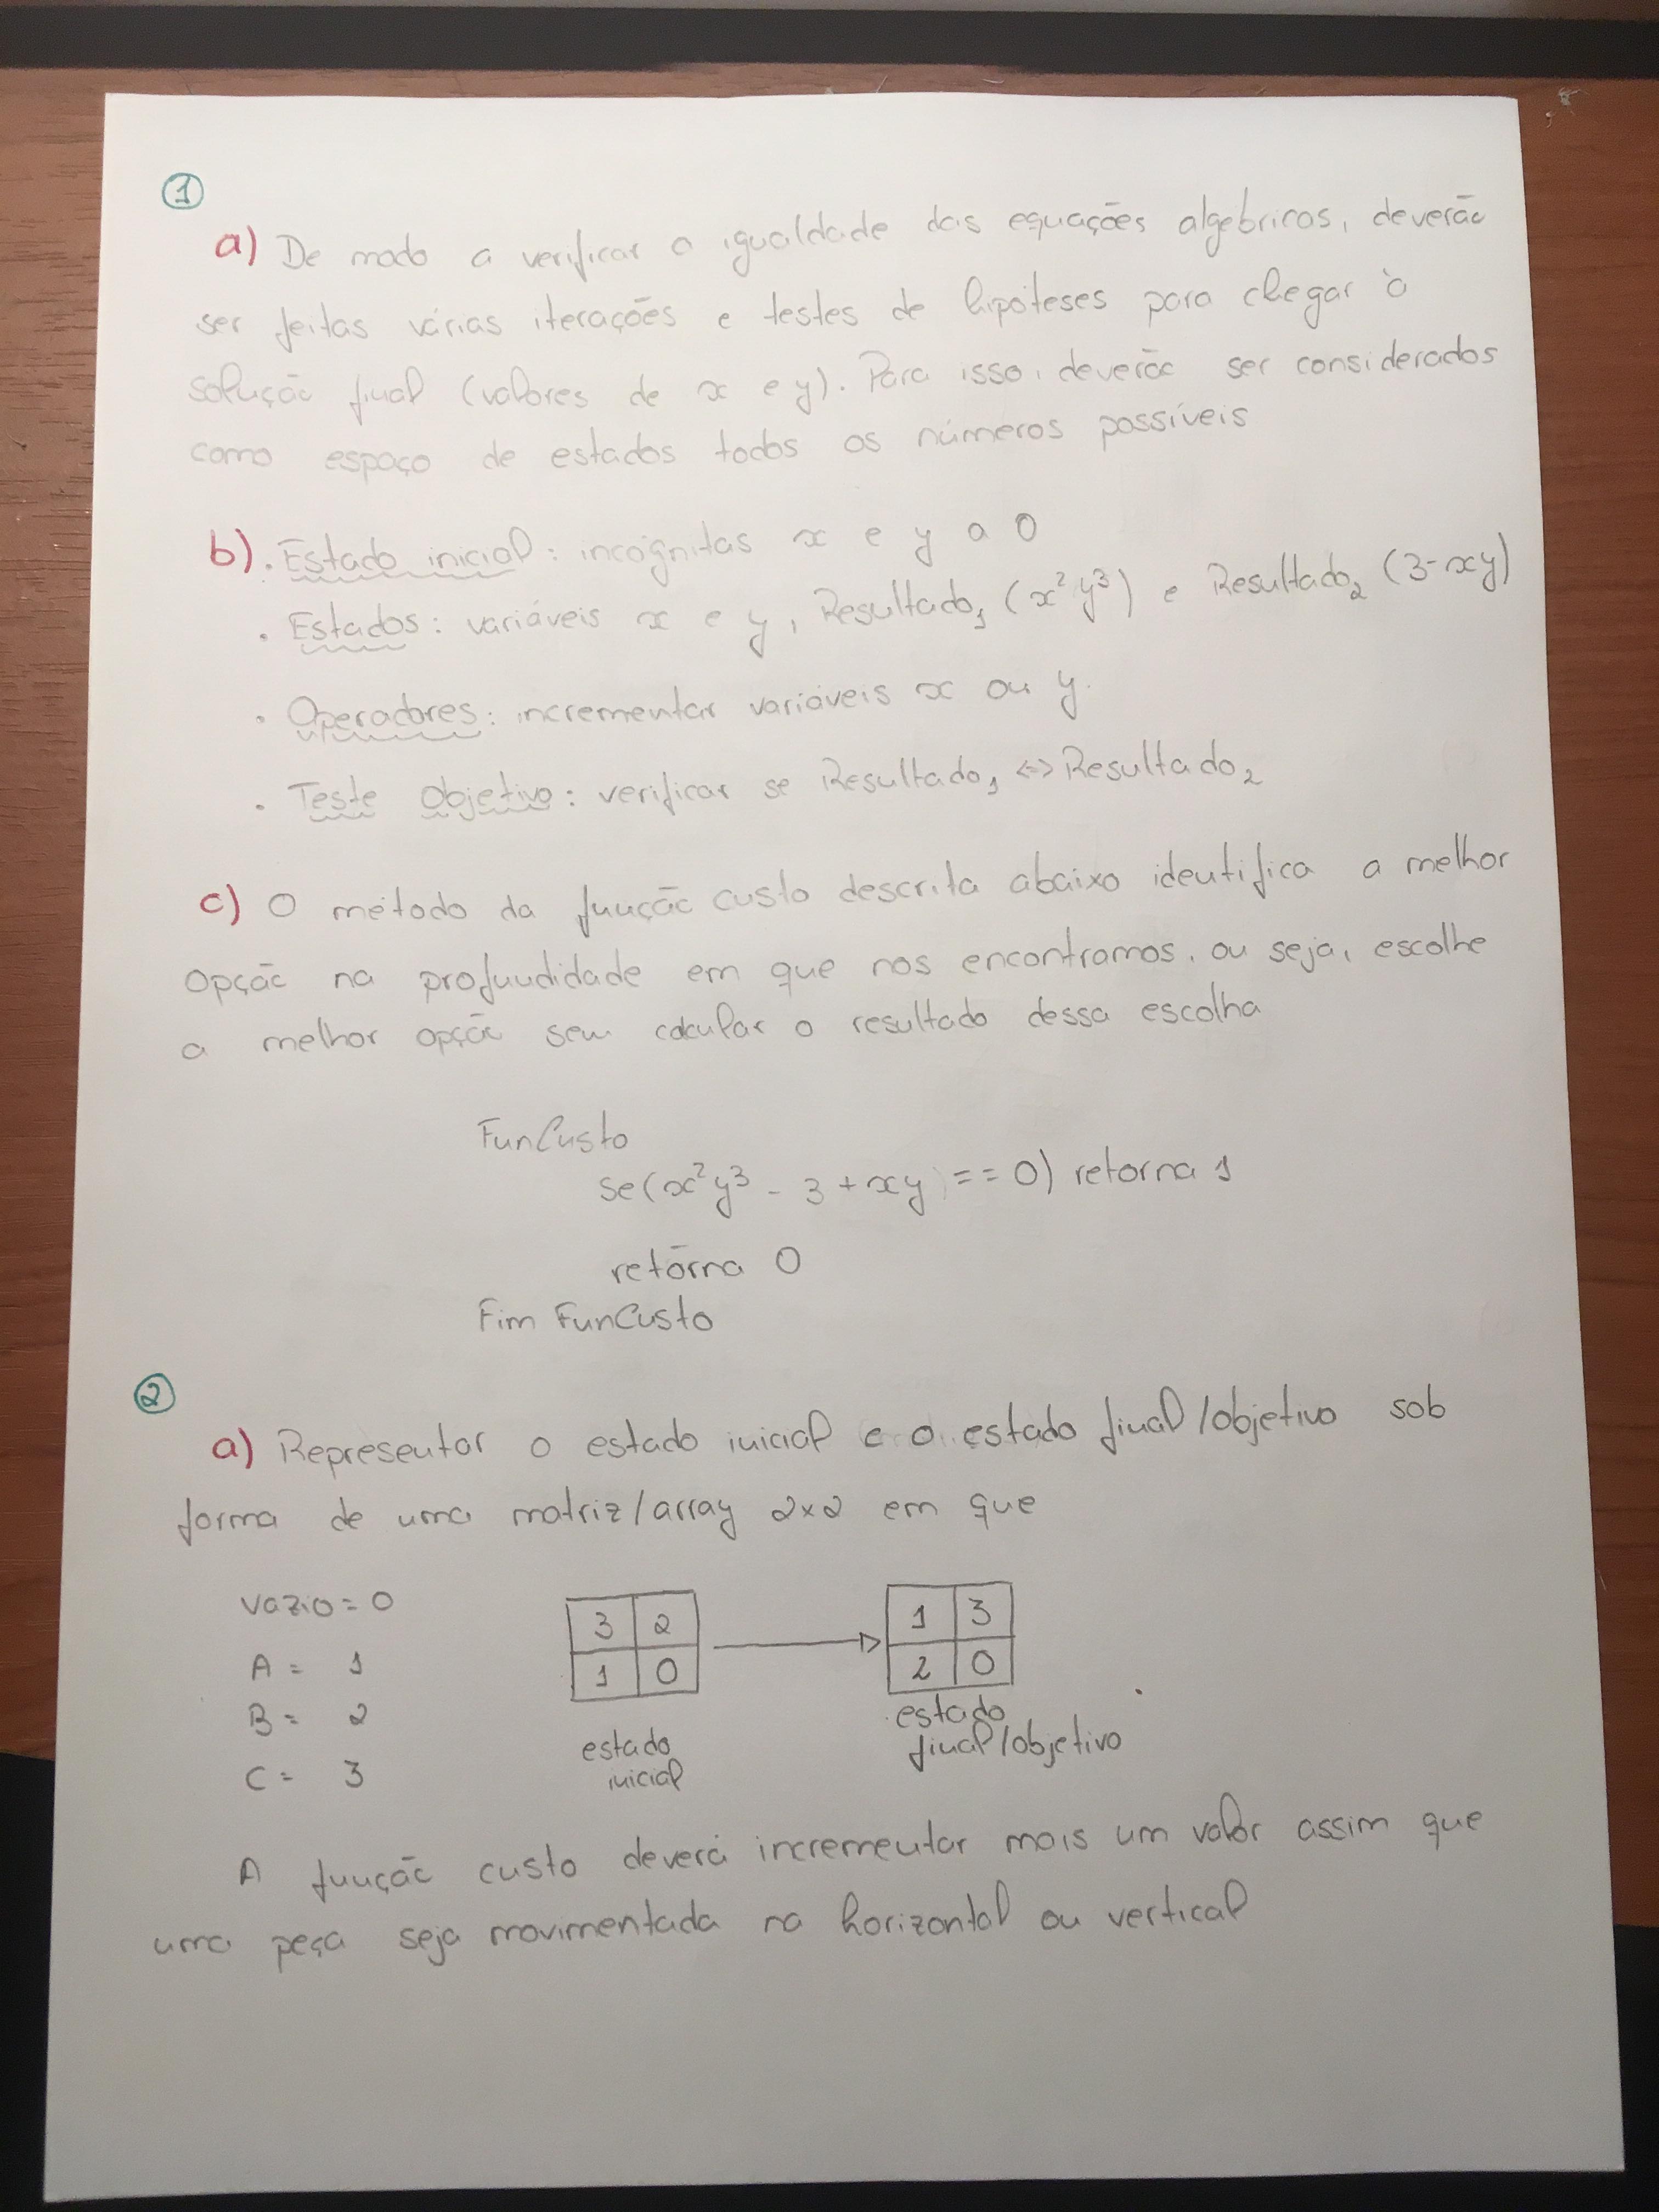 1
a) De modo a verificar a igualdade das equações algebricas, deverão
ser feitas várias iterações e testes de hipóteses para chegar à
solução final (valores de x e y). Para isso, deverão ser considerados
como espaço de estados todos os números possíveis
b) . Estado inicial: incógnitas x e y a 0
. Estados: variáveis x e y, Resultado₁ (x²y³) e Resultado₂ (3-xy)
. Operadores: incrementar variáveis x ou y.
. Teste Objetivo: verificar se Resultado₁ <=> Resultado₂
c) O método da função custo descrita abaixo identifica a melhor
opção na profundidade em que nos encontramos, ou seja, escolhe
a melhor opção sem calcular o resultado dessa escolha
FunCusto
se(x²y³ - 3 + xy == 0) retorna 1
retorna 0
Fim FunCusto
2
a) Representar o estado inicial e o estado final/objetivo sob
forma de uma matriz/array 2x2 em que
vazio = 0
A = 1
B = 2
C = 3
3 2
1 0
estado
inicial
1 3
2 0
estado
final/objetivo
A função custo deverá incrementar mais um valor assim que
uma peça seja movimentada na horizontal ou vertical